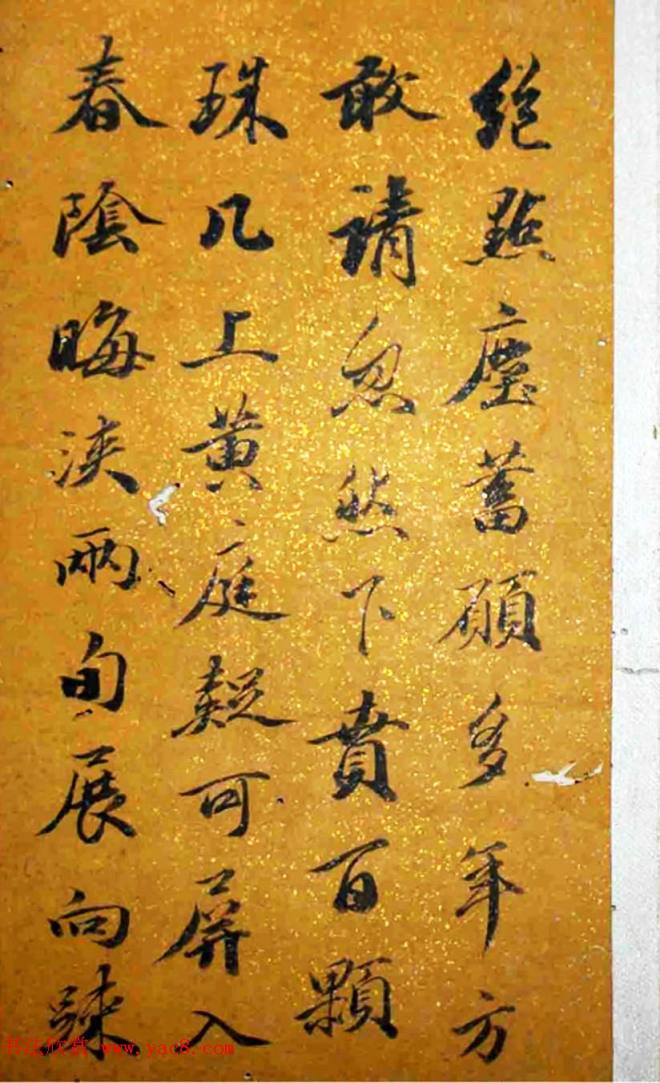 絕點塵蓄願多年方
敢請忽然下賁百顆
珠几上黃庭疑可屏入
春陰晦浹兩旬展向疎
书法欣赏 www.yac8.com